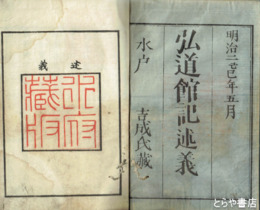 明治二己巳年五月
弘道館記述義
水戸 吉成氏蔵
述義
水府
藏版
とらや書店